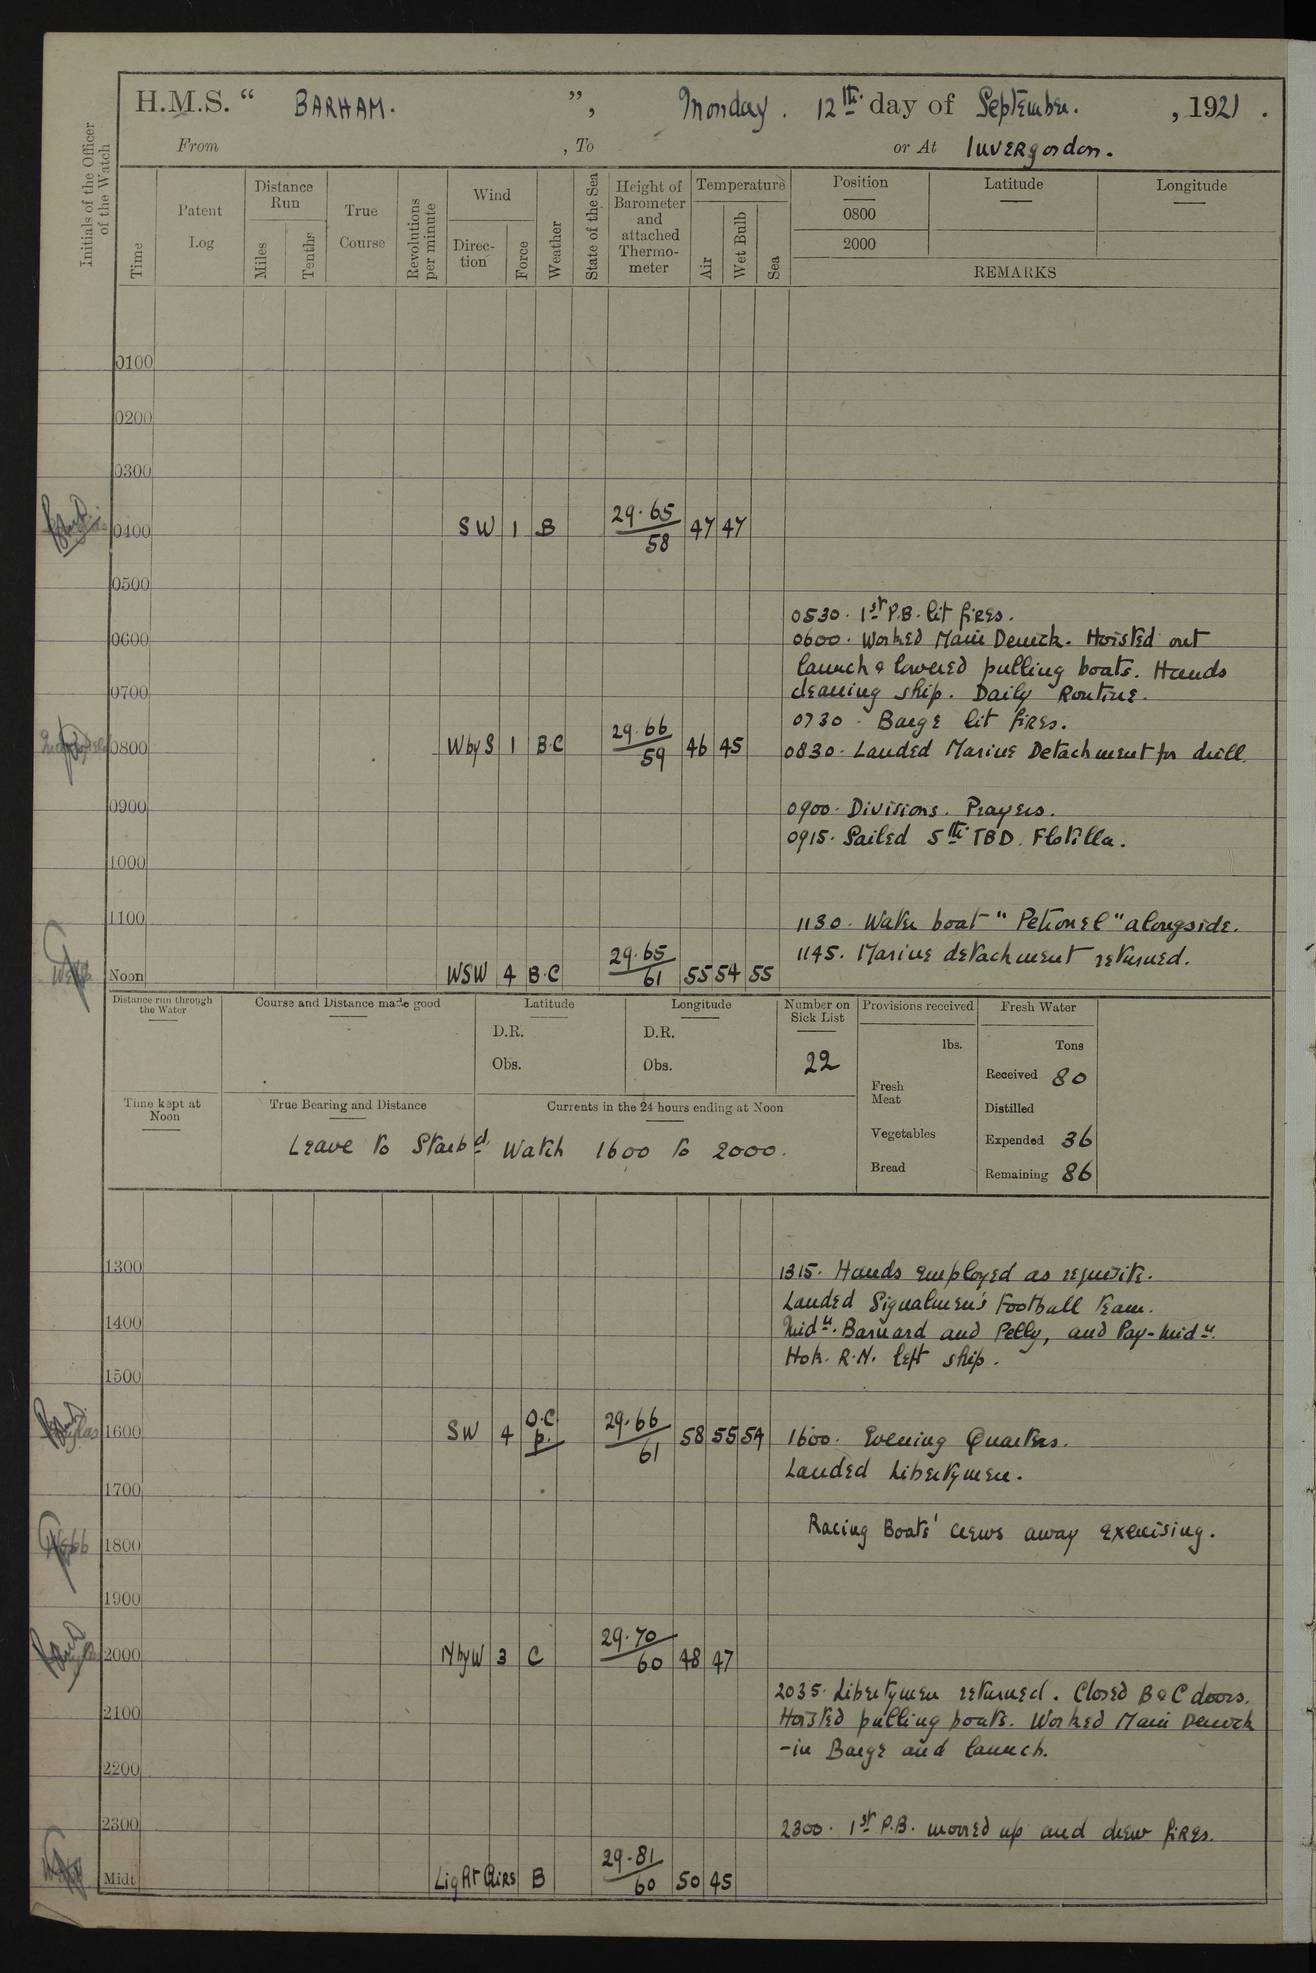 H.M.S. " BARHAM. ", Monday. 12th day of September. , 1921.
From , To or At Invergordon.
Initials of the Officer of the Watch
Time
Patent Log
Distance Run
Miles
Tenths
True Course
Revolutions per minute
Wind
Direc-tion
Force
Weather
State of the Sea
Height of Barometer and attached Thermo-meter
Temperature
Air
Wet Bulb
Sea
Position Latitude Longitude
0800
2000
REMARKS
0100
0200
0300
0400 SW 1 B 29.65 58 47 47
0500
0530. 1st P.B. lit fires.
0600 0600. Worked Main Derrick. Hoisted out
launch & lowered pulling boats. Hands
0700 cleaning ship. Daily Routine.
0730. Barge lit fires.
0800 W by S 1 B.C 29.66 59 46 45 0830. Landed Marine Detachment for drill.
0900 0900. Divisions. Prayers.
0915. Sailed 5th TBD. Flotilla.
1000
1100 1130. Water boat "Petronel" alongside.
1145. Marine detachment returned.
Noon WSW 4 B.C 29.65 61 55 54 55
Distance run through the Water
Course and Distance made good
Latitude
D.R.
Obs.
Longitude
D.R.
Obs.
Number on Sick List
22
Provisions received
lbs.
Fresh Meat
Vegetables
Bread
Fresh Water
Tons
Received 80
Distilled
Expended 36
Remaining 86
Time kept at Noon
True Bearing and Distance
Currents in the 24 hours ending at Noon
Leave to Starbd Watch 1600 to 2000.
1300 1315. Hands employed as requisite.
Landed Signalmen's Football team.
1400 Midn. Barnard and Pelly, and Pay-Midn.
R.N. left ship.
1500
1600 SW 4 O.C. p. 29.66 61 58 55 54 1600. Evening Quarters.
Landed Libertymen.
1700
Racing Boats' crews away exercising.
1800
1900
2000 N by W 3 C 29.70 60 48 47
2035. Libertymen returned. Closed B & C doors.
2100 Hoisted pulling boats. Worked Main Derrick
-in Barge and launch.
2200
2300 2300. 1st P.B. moored up and drew fires.
Midt. Light Airs B 29.81 60 50 45